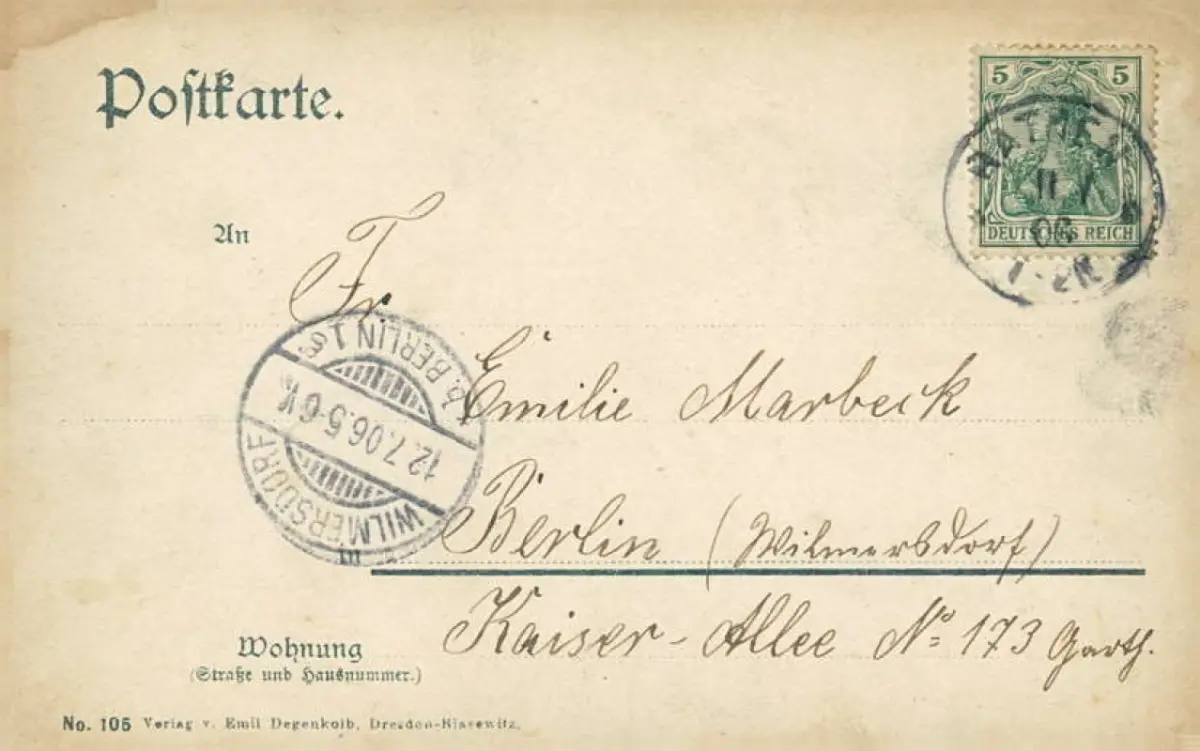 Postkarte.
5 5
DEUTSCHES REICH
RATHEN
11 7
06
1-2N.
An
Fr.
Emilie Marbeck
b. BERLIN 1
12.7.06.5-6V.
WILMERSDORF
in
Berlin (Wilmersdorf)
Kaiser-Allee No 173 Garth.
Wohnung
(Straße und Hausnummer.)
No. 105 Verlag v. Emil Degenkolb, Dresden-Blasewitz.